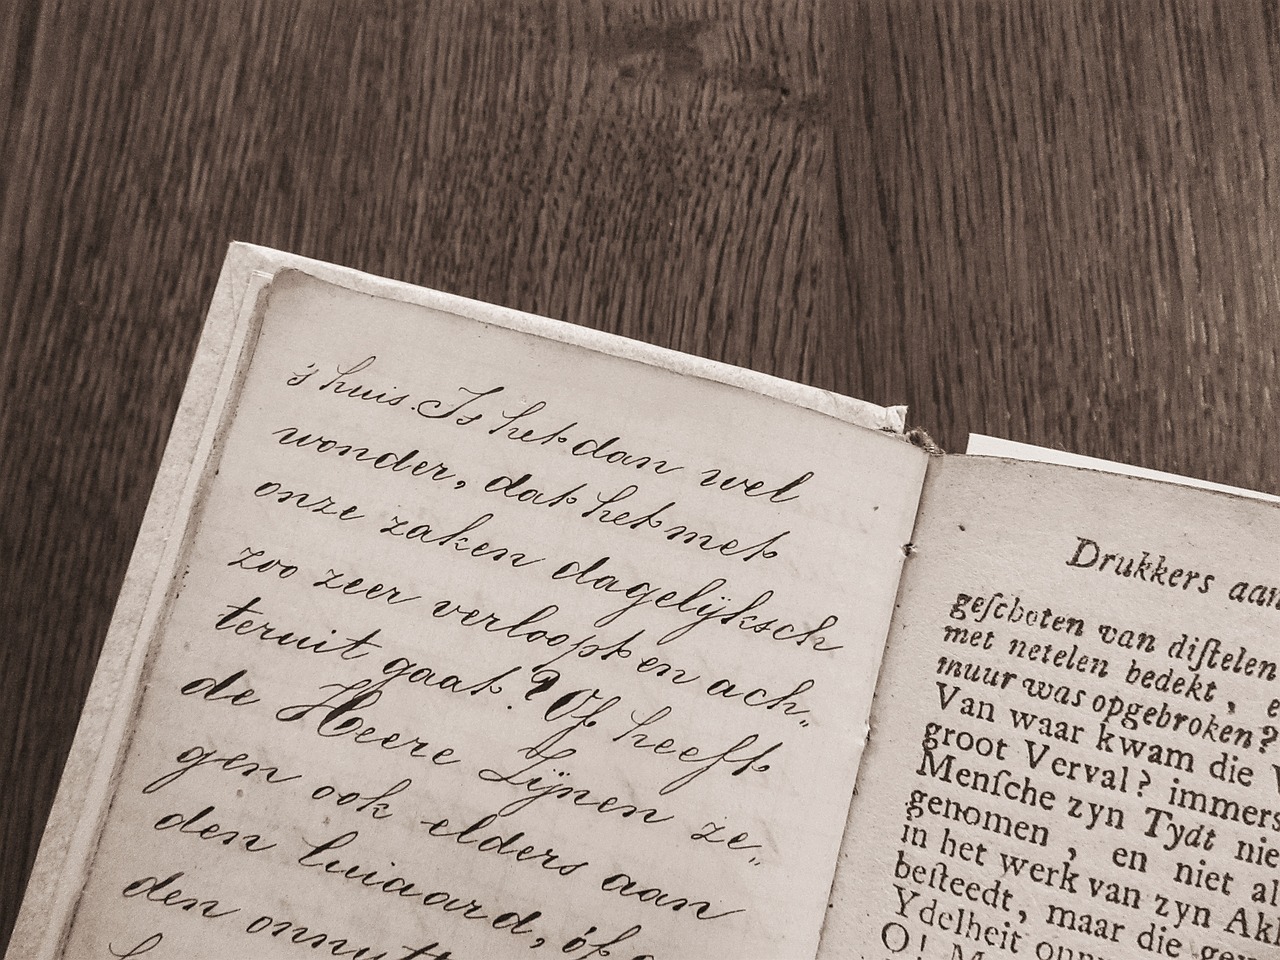 's huis. Is het dan wel
wonder, dat het met
onze zaken dagelijksch
zoo zeer verloopt en ach„
teruit gaat? Of heeft
de Heere Zijnen ze„
gen ook elders aan
den luiaard, óf a
den onnutt
Drukkers aan
geſchoten van diſtelen
met netelen bedekt, e
muur was opgebroken?
Van waar kwam die V
groot Verval? immers
Menſche zyn Tydt nie
genomen, en niet al
in het werk van zyn Akk
beſteedt, maar die gew
Ydelheit onn
O! M